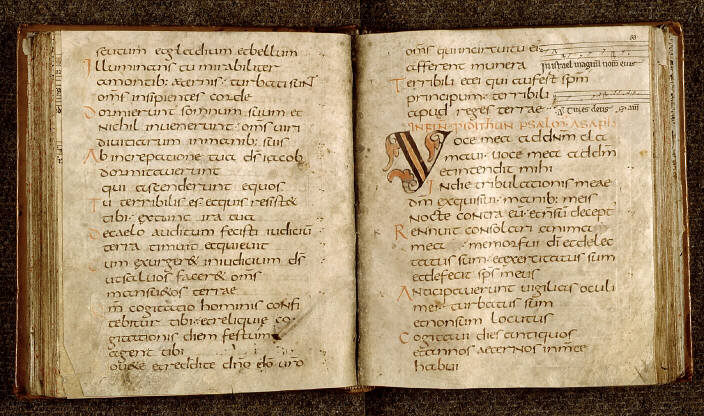 scutum et gladium et bellum
Illuminans tu mirabiliter
a montib; aeternis· turbati sunt
om̅s insipientes corde
Dormierunt somnum suum et
nichil invenerunt· om̅s viri
divitiarum in manib; suis
Ab increpatione tua d̅s iacob
dormitaverunt
qui ascenderunt equos
Tu terribilis es et quis resist&
tibi· ex tunc ira tua
De caelo auditum fecisti iudiciū
terra timuit et quievit
Cum exurger& in iudicium d̅s
ut salvos facer& om̅s
mansu&os terrae
Qm̅ cogitatio hominis confi
tebitur tibi· et reliquie co
gitationis diem festum
agent tibi
Vov&e et reddite dn̅o d̅o v̅r̅o
om̅s qui in circuitu ei'
afferent munera
Terribili et ei qui aufert sp̅m
principum· terribili
apud reges terrae
88
In israel magnū nom̅ eius
IN FINE P IDITHUN PSALM' ASAPH
Voce mea ad dn̅m cla
mavi· voce mea ad d̅m
et intendit mihi
In die tribulationis meae
dm̅ exquisivi· manib; meis
nocte contra eū· et n̅ sū decept'
Rennuit consolari anima
mea · memor fui di̅ et delec
tatus sum· et exercitatus sum
et defecit sp̅s meus
Anticipaverunt vigilias oculi
mei· turbatus sum
et non sum locutus
Cogitavi dies antiquos
et annos aeternos in m̅te
habui